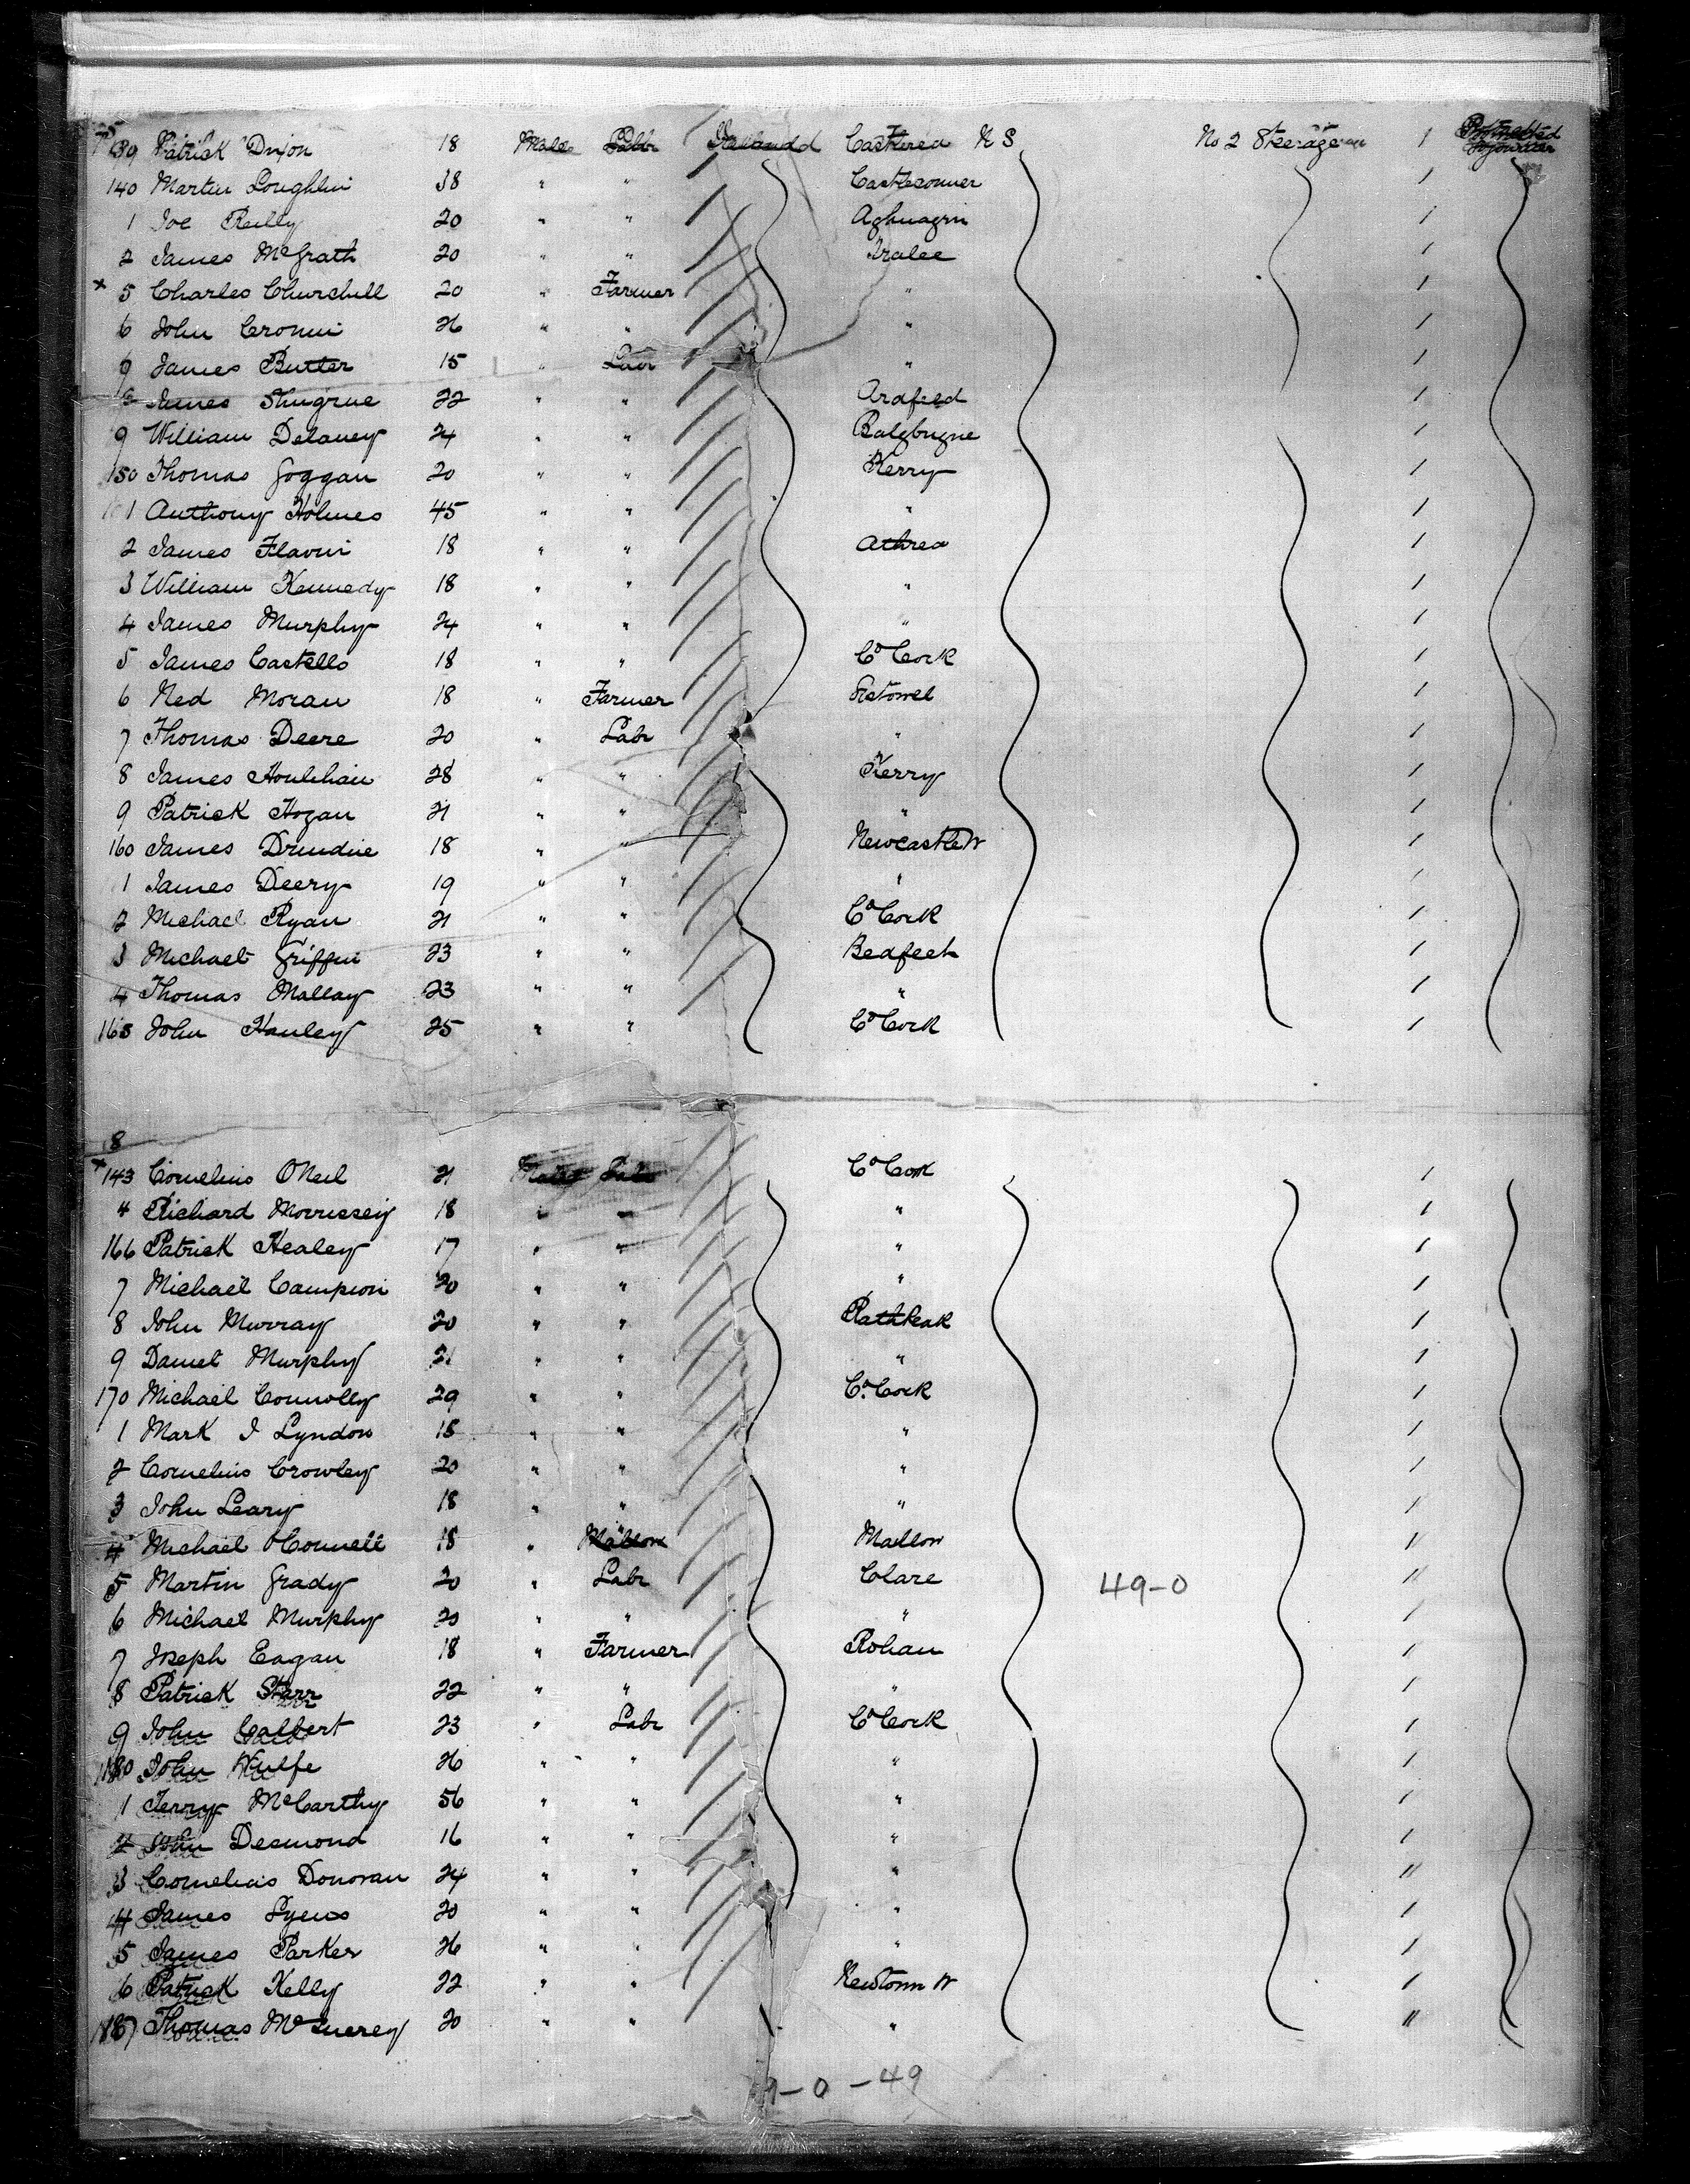 139 Patrick Dixon 18 Male Labr Ireland Castlerea U S No 2 Steerage 1 Protracted Sojourner
140 Martin Loughlin 38 " " Castleconner /
1 Joe Reilly 20 " " /
2 James McGrath 20 " " Tralee /
x 5 Charles Churchill 20 " Farmer " /
6 John Cronin 26 " " " /
7 James Butler 15 " Labr " /
8 James Shugrue 22 " " Ardfeed /
9 William Delaney 24 " " /
150 Thomas Goggan 20 " " Kerry /
1 Anthony Holmes 45 " " " /
2 James Flavin 18 " " Athrea /
3 William Kennedy 18 " " " /
4 James Murphy 24 " " " /
5 James Castello 18 " " Co Cork /
6 Ned Moran 18 " Farmer Listowel /
7 Thomas Deere 20 " Labr " /
8 James Houlihan 28 " " Kerry /
9 Patrick Hogan 21 " " " /
160 James 18 " " Newcastle W /
1 James Deery 19 " " " /
2 Michael Ryan 21 " " Co Cork /
3 Michael Griffin 23 " " /
4 Thomas Mallay 23 " " " /
165 John Hanley 25 " " Co Cork /
8
x 143 Cornelius ONeil 21 Male Labr Co Cork /
4 Richard Morrissey 18 " " " /
166 Patrick Healey 17 " " " /
7 Michael Campion 20 " " " /
8 John Murray 20 " " Rathkeak /
9 Daniel Murphy 21 " " " /
170 Michael Connolly 29 " " Co. Cork /
1 Mark J Lyndon 18 " " " /
2 Cornelius Crowley 20 " " " /
3 John Leary 18 " " " /
4 Michael OConnell 18 " Mallow Mallow /
5 Martin Grady 20 " Labr Clare 49-0 //
6 Michael Murphy 20 " " " /
7 Joseph Eagan 18 " Farmer Rohan /
8 Patrick Starr 22 " " " /
9 John Calbert 23 " Labr Co Cork /
180 John Wulfe 26 " " " /
1 Terry McCarthy 56 " " " /
2 John Desmond 16 " " " /
3 Cornelius Donovan 24 " " " //
4 James Lyens 20 " " " /
5 James Parker 26 " " " /
6 Patrick Kelly 22 " " Newtown W /
187 Thomas McInerey 20 " " " //
9-0-49